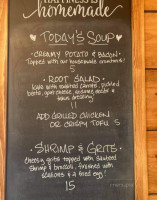 HAPPINESS IS
homemade
TODAY'S SOUP
•CREAMY POTATO & BACON•
topped with our housemade croutons!
5
• ROOT SALAD •
kale with roasted carrots, pickled
beets, goat cheese,
house dressing
11
ADD GRILLED CHICKEN
OR CRISPY TOFU 5
• SHRIMP & GRITS •
Cheesy grits topped with sautéed
Shrimp & broccoli, finished with
scallions & a fried egg!
15